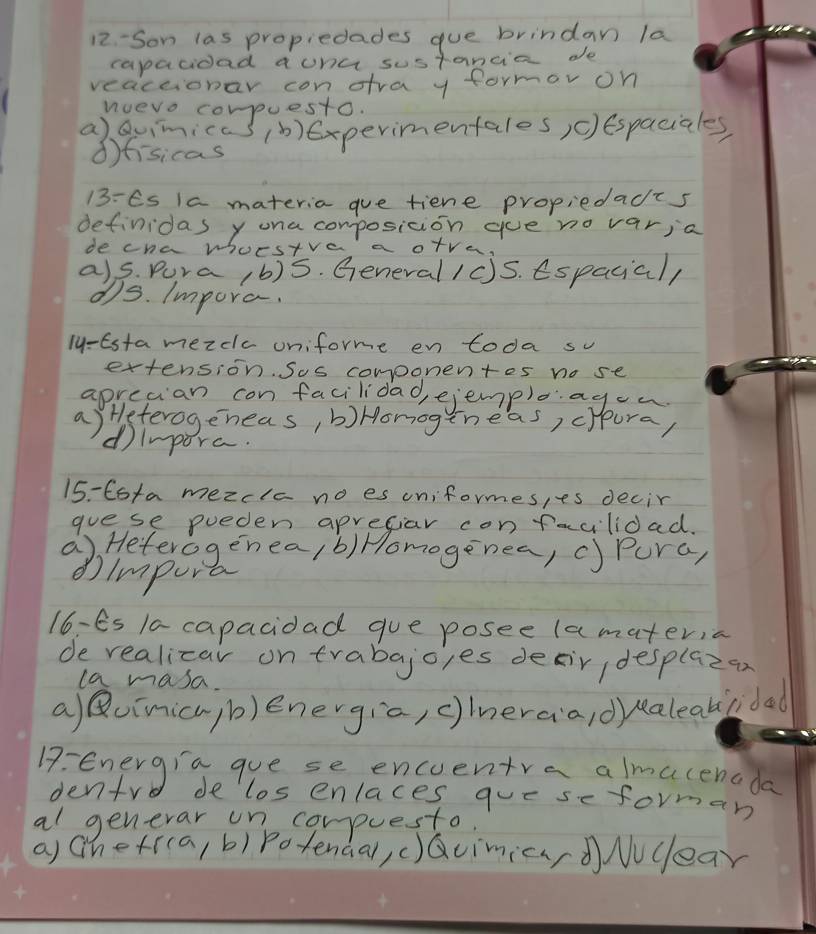 12.-Son las propiedades que brindan la
capacidad a una sustancia de
reaccionar con otra y formar un
nuevo compuesto.
a) Químicas, b) Experimentales, c) Espaciales,
d) físicas
13-Es la materia que tiene propiedades
definidas y una composición que no varia
de una muestra a otra.
a) S. Pura, b) S. General, c) S. Espacial,
d) S. Impura.
14-Esta mezcla uniforme en toda su
extensión. Sus componentes no se
aprecian con facilidad, ejemplo: agua
a) Heterogéneas, b) Homogéneas, c) Pura,
d) Impura.
15.-Esta mezcla no es uniformes, es decir
que se pueden apreciar con facilidad.
a) Heterogénea, b) Homogénea, c) Pura,
d) Impura
16.-Es la capacidad que posee la materia
de realizar un trabajo, es decir, desplazar
la masa.
a) Química, b) Energía, c) Inercia, d) Maleabilidad
17.-Energía que se encuentra almacenada
dentro de los enlaces que se forman
al generar un compuesto.
a) Cinetica, b) Potencial, c) Química, d) Nuclear